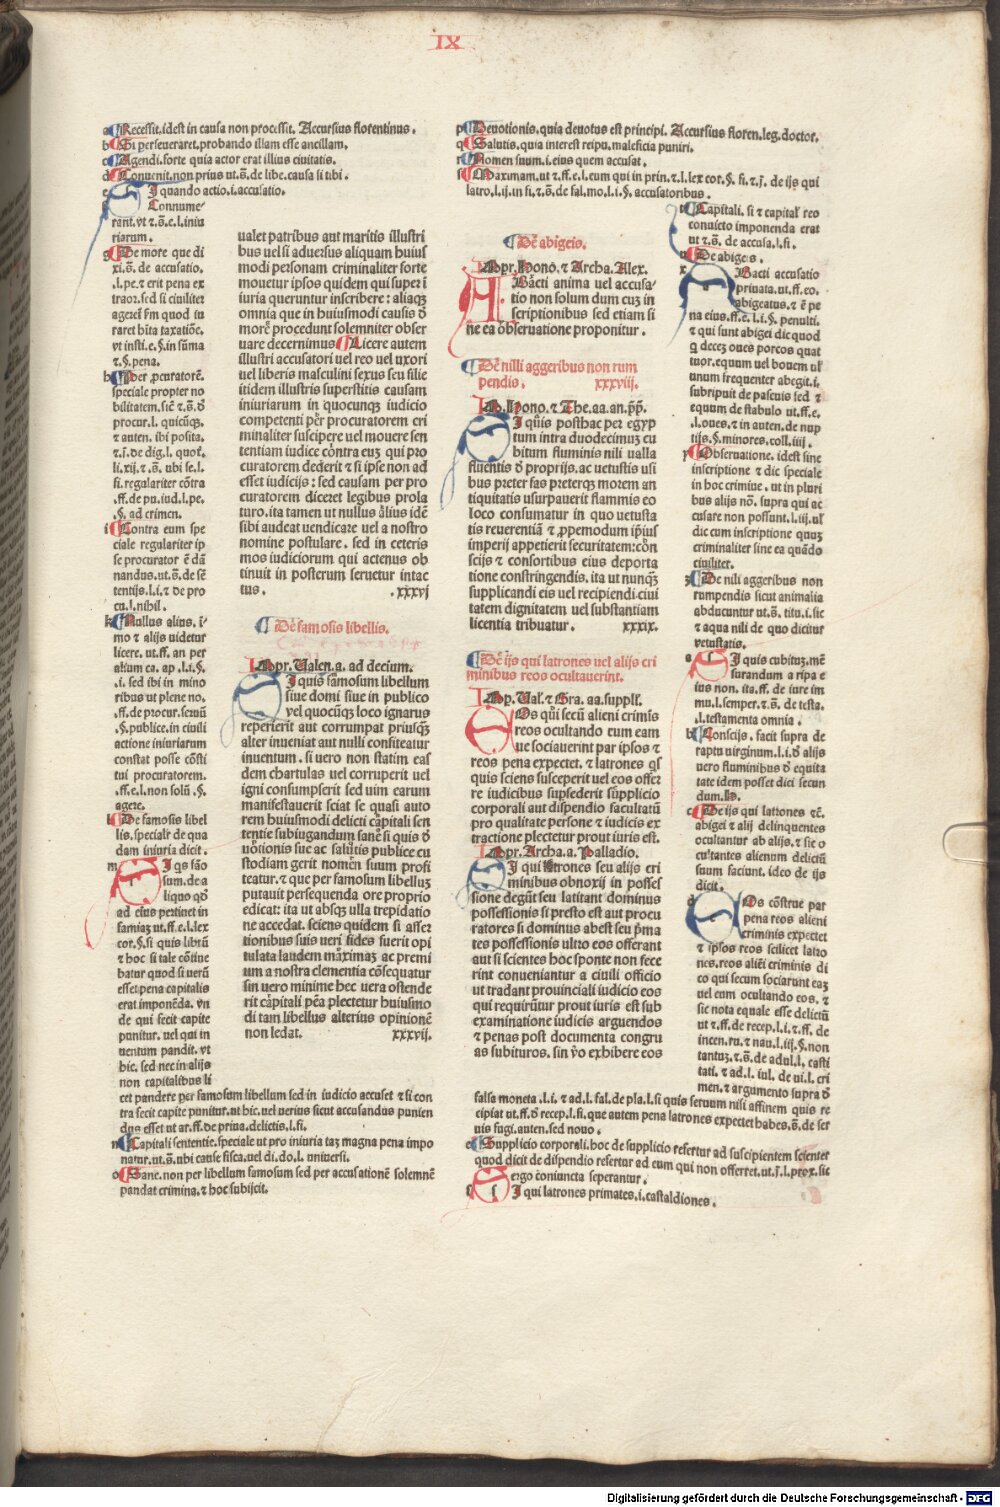 IX
a Recessit.idest in causa non processit. Accursius florentinus.
b Si perseueraret.probando illam esse ancillam.
c Agendi.forte quia actor erat illius ciuitatis.
d Conuenit.non prius ut.s̄.de libe.causa si tibi.
e SI quando actio.i.accusatio.
f Connume
rant.vt ⁊.s̄.e.l.iniu
riarum.
g De more que di
xi.s̄. de accusatio.
.l.pe.⁊ erit pena ex
traor.sed si ciuiliter
ageret fm quod iu
raret hita taxatiōe.
vt insti.e.§.in sūma
⁊.§.pena.
h Per ꝓcuratorē.
speciale propter no
bilitatem.sic̄ ⁊.s̄.d̄
procur.l. quicūq̨.
⁊ auten. ibi posita.
⁊.j̄.de dig.l. quot.
li.xij.⁊.s̄. ubi se.l.
fi.regulariter cōtra
.ff.de pu.iud.l.pe.
.§. ad crimen.
i Contra eum spe
ciale regulariter ip
se procurator ē dā
nandus.ut.s̄.de sē
tentijs.l.i.⁊ de pro
cu.l.nihil.
k Nullus alius. ī
mo ⁊ alijs uidetur
licere. ut.ff. an per
alium ca. ap .l.i.§.
.i. sed ibi in mino
ribus ut plene no.
.ff.de procur.seruū
.§.publice.in ciuili
actione iniuriarum
constat posse cōsti
tui procuratorem.
.ff.e.l.non solū .§.
agere.
l De famosis libel
lis.specialr̄ de qua
dam iniuria dicit.
m SI qs fāo
sum.de a
liquo qđ
ad eius pertinet in
famiaȝ ut.ff.e.l.lex
cor.§.si quis librū
⁊ hoc si tale cōtine
batur quod si uerū
esset pena capitalis
erat imponēda. vn
de qui fecit capite
punitur. uel qui in
uentum pandit. vt
hic. sed nec in alijs
non capitalibus li
cet pandere per famosum libellum sed in iudicio accuset ⁊ si con
tra fecit capite punitur.ut hic.uel uerius sicut accusandus punien
dus esset ut ar.ff.de priua.delictis.l.fi.
n Capitali sententie.speciale ut pro iniuria taȝ magna pena impo
natur.ut.s̄.ubi cause fisca.uel di.do.l. uniuersi.
o Sane.non per libellum famosum sed per accusationē solemnē
pandat crimina.⁊ hoc subijcit.
ualet patribus aut maritis illustri
bus uel si aduersus aliquam huius
modi personam criminaliter forte
mouetur ipsos quidem qui super ī
iuria queruntur inscribere: aliaq̨
omnia que in huiusmodi causis d̄
more procedunt solemniter obser
uare decernimus Licere autem
illustri accusatori uel reo uel uxori
uel liberis masculini sexus seu filie
itidem illustris superstitis causam
iniuriarum in quocunq̨ iudicio
competenti per procuratorem cri
minaliter suscipere uel mouere sen
tentiam iudice contra euȝ qui pro
curatorem dederit ⁊ si ipse non ad
esset iudicijs : sed causam per pro
curatorem diceret legibus prola
turo.ita tamen ut nullus alius idē
sibi audeat uendicare uel a nostro
nomine postulare. sed in ceteris
mos iudiciorum qui actenus ob
tinuit in posterum seruetur intac
tus. .xxxvj
De famosis libellis.
Impr. Ualen.a. ad decium.
SI quis famosum libellum
siue domi siue in publico
vel quocūq̨ loco ignarus
repererit aut corrumpat priusq̨
alter inueniat aut nulli confiteatur
inuentum. si uero non statim eas
dem chartulas uel corruperit uel
igni consumpserit sed uim earum
manifestauerit sciat se quasi auto
rem huiusmodi delicti capitali sen
tentie subiugandum sane si quis d̄
uotionis sue ac salutis publice cu
stodiam gerit nomen suum profi
teatur.⁊ que per famosum libelluȝ
putauit persequenda ore proprio
edicat: ita ut absq̨ ulla trepidatio
ne accedat. sciens quidem si asser
tionibus suis ueri fides fuerit opi
tulata laudem maximaȝ ac premi
um a nostra clementia cōsequatur
sin uero minime hec uera ostende
rit capitali pēa plectetur huiusmo
di tam libellus alterius opinionē
non ledat. xxxvij.
p Deuotionis.quia deuotus est principi. Accursius floren.leg.doctor.
q Salutis.quia interest reipu.maleficia puniri.
r Nomen suum.i.eius quem accusat.
s Maximam.ut ⁊.ff.e.l.eum qui in prin.⁊.l.lex cor.§. fi.⁊.j̄. de ijs qui
latro.l.ij.in fi.⁊.s̄.de fal.mo.l.i.§. accusatoribus.
De abigeis.
Impr.Hono.⁊ Archa. Alex.
ABacti anima uel accusa
tio non solum dum cuȝ in
scriptionibus sed etiam si
ne ea obseruatione proponitur.
De nilli aggeribus non rum
pendis. xxxviij.
Im.Hono.⁊ The.aa.an.p̄p̄.
SI quis posthac per egyp
tum intra duodecimuȝ cu
bitum fluminis nili ualla
fluentis d̄ proprijs.ac uetustis usi
bus preter fas preterq̨ morem an
tiquitatis usurpauerit flammis eo
loco consumatur in quo uetusta
tis reuerentiā ⁊ ꝓpemodum ip̄ius
imperij appetierit securitatem:cōn
scijs ⁊ consortibus eius deporta
tione constringendis. ita ut nunq̨̄
supplicandi eis uel recipiendi ciui
tatem dignitatem uel substantiam
licentia tribuatur. xxxix.
De ijs qui latrones uel alijs cri
minibus reos ocultauerint.
Imp.Ual.⁊ Gra.aa.suppll̄.
EOs qui secū alieni crimīs
reos ocultando eum eam
ue sociauerint par ipsos ⁊
reos pena expectet. ⁊ latrones qs̄
quis sciens susceperit uel eos offer
re iudicibus supsederit supplicio
corporali aut dispendio facultatū
pro qualitate persone ⁊ iudicis ex
tractione plectetur prout iuris est.
Impr.Archa.a.Palladio.
SI qui latrones seu alijs cri
minibus obnoxij in posses
sione degūt seu latitant dominus
possessionis si presto est aut procu
ratores si dominus abest seu p̄ma
tes possessionis ultro eos offerant
aut si scientes hoc sponte non fece
rint conueniantur a ciuili officio
ut tradant prouinciali iudicio eos
qui requirūtur prout iuris est sub
examinatione iudicis arguendos
⁊ penas post documenta congru
as subituros. sin v̄o exhibere eos
t Capitali. si ⁊ capitalr̄ reo
conuicto imponenda erat
ut ⁊.s̄. de accusa.l.fi.
u De abigeis.
x ABacti accusatio
priuata.ut.ff.eo.
abigeatus.⁊ ē pe
na eius.ff.e.l.i.§. penulti.
⁊ qui sunt abigei dic quod
q̄ deceȝ oues porcos quat
tuor.equum uel bouem ul̄
unum frequenter abegit.i.
subripuit de pascuis sed ⁊
equum de stabulo ut.ff.e.
.l.oues.⁊ in auten.de nup
tijs.§.minores.coll.iiij.
y Obseruatione. idest sine
inscriptione ⁊ dic speciale
in hoc crimine. ut in pluri
bus alijs nō. supra qui ac
cusare non possunt.l.iij.ul̄
dic cum inscriptione quuȝ
criminaliter sine ea quādo
ciuiliter.
z De nili aggeribus non
rumpendis sicut animalia
abducuntur ut.s̄. titu.i.sic
⁊ aqua nili de quo dicitur
vetustatis.
a SI quis cubituȝ.mē
surandum a ripa e
ius non. ita.ff. de iure im
mu.l.semper.⁊.s̄. de testa.
.l.testamenta omnia.
b Conscijs. facit supra de
raptu uirginum.l.i.d̄ alijs
uero fluminibus d̄ equita
tate idem posset dici secun
dum.H.
c De ijs qui latrones ⁊c̄.
abigei ⁊ alij delinquentes
ocultantur ab alijs.⁊ sic o
cultantes alienum delictū
suum faciunt. ideo de ijs
dicit.
d EOs cōstrue par
pena reos alieni
criminis expectet
⁊ ipsos reos scilicet latro
nes.reos aliēi criminis di
co qui secum sociarunt eaȝ
uel eum ocultando eos. ⁊
sic nota equale esse delictū
ut ⁊.ff.de recep.l.i.⁊.ff. de
incen.ru.⁊ nau.l.iij.§.non
tantuȝ.⁊.s̄.de adul.l. casti
tati. ⁊ ad.l. iul. de ui.l. cri
men.⁊ argumento supra d̄
falsa moneta .l.i.⁊ ad.l. fal.de pla.l.si quis seruum nisi affinem quis re
cipiat ut.ff.d̄ recep.l.fi.que autem pena latrones expectet habes.s̄.de ser
uis fugi.auten.sed nouo.
e Supplicio corporali.hoc de supplicio refertur ad suscipientem scienter
quod dicit de dispendio refertur ad eum qui non offerret.ut.j̄.l.prox.sic
ergo coniuncta seperantur.
f SI qui latrones primates.i.castaldiones.
Digitalisierung gefördert durch die Deutsche Forschungsgemeinschaft - DFG